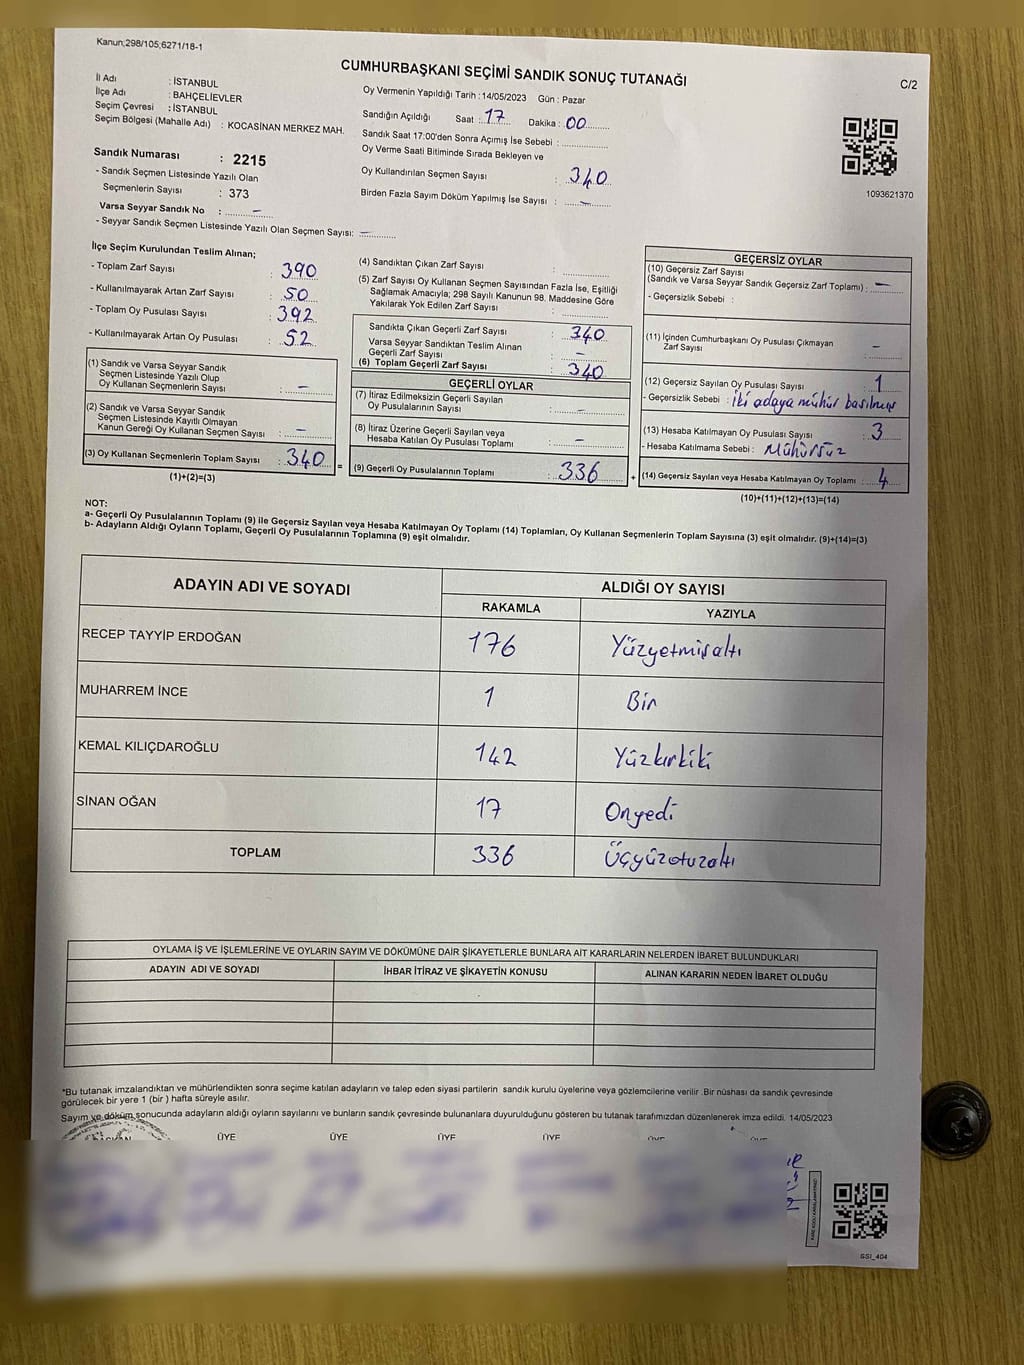 Kanun;298/105;6271/18-1
CUMHURBAŞKANI SEÇİMİ SANDIK SONUÇ TUTANAĞI
C/2
İl Adı : İSTANBUL
İlçe Adı : BAHÇELİEVLER
Seçim Çevresi : İSTANBUL
Seçim Bölgesi (Mahalle Adı) : KOCASİNAN MERKEZ MAH.
Sandık Numarası : 2215
- Sandık Seçmen Listesinde Yazılı Olan
Seçmenlerin Sayısı : 373
Varsa Seyyar Sandık No : -
- Seyyar Sandık Seçmen Listesinde Yazılı Olan Seçmen Sayısı: -
Oy Vermenin Yapıldığı Tarih : 14/05/2023 Gün : Pazar
Sandığın Açıldığı Saat : 17 Dakika : 00
Sandık Saat 17:00'den Sonra Açımış İse Sebebi :
Oy Verme Saati Bitiminde Sırada Bekleyen ve
Oy Kullandırılan Seçmen Sayısı : 340
Birden Fazla Sayım Döküm Yapılmış İse Sayısı : -
1093621370
İlçe Seçim Kurulundan Teslim Alınan;
- Toplam Zarf Sayısı : 390
- Kullanılmayarak Artan Zarf Sayısı : 50
- Toplam Oy Pusulası Sayısı : 392
- Kullanılmayarak Artan Oy Pusulası : 52
(1) Sandık ve Varsa Seyyar Sandık
Seçmen Listesinde Yazılı Olup
Oy Kullanan Seçmenlerin Sayısı : -
(2) Sandık ve Varsa Seyyar Sandık
Seçmen Listesinde Kayıtlı Olmayan
Kanun Gereği Oy Kullanan Seçmen Sayısı : -
(3) Oy Kullanan Seçmenlerin Toplam Sayısı : 340 =
(1)+(2)=(3)
(4) Sandıktan Çıkan Zarf Sayısı :
(5) Zarf Sayısı Oy Kullanan Seçmen Sayısından Fazla İse, Eşitliği
Sağlamak Amacıyla; 298 Sayılı Kanunun 98. Maddesine Göre
Yakılarak Yok Edilen Zarf Sayısı :
Sandıkta Çıkan Geçerli Zarf Sayısı : 340
Varsa Seyyar Sandıktan Teslim Alınan
Geçerli Zarf Sayısı : -
(6) Toplam Geçerli Zarf Sayısı : 340
GEÇERLİ OYLAR
(7) İtiraz Edilmeksizin Geçerli Sayılan
Oy Pusulalarının Sayısı : -
(8) İtiraz Üzerine Geçerli Sayılan veya
Hesaba Katılan Oy Pusulası Toplamı : -
(9) Geçerli Oy Pusulalarının Toplamı : 336 +
GEÇERSİZ OYLAR
(10) Geçersiz Zarf Sayısı
(Sandık ve Varsa Seyyar Sandık Geçersiz Zarf Toplamı) : -
- Geçersizlik Sebebi :
(11) İçinden Cumhurbaşkanı Oy Pusulası Çıkmayan
Zarf Sayısı : -
(12) Geçersiz Sayılan Oy Pusulası Sayısı : 1
- Geçersizlik Sebebi : İki adaya mühür basılmış
(13) Hesaba Katılmayan Oy Pusulası Sayısı : 3
- Hesaba Katılmama Sebebi : Mühürsüz
(14) Geçersiz Sayılan veya Hesaba Katılmayan Oy Toplamı : 4
(10)+(11)+(12)+(13)=(14)
NOT:
a- Geçerli Oy Pusulalarının Toplamı (9) ile Geçersiz Sayılan veya Hesaba Katılmayan Oy Toplamı (14) Toplamları, Oy Kullanan Seçmenlerin Toplam Sayısına (3) eşit olmalıdır. (9)+(14)=(3)
b- Adayların Aldığı Oyların Toplamı, Geçerli Oy Pusulalarının Toplamına (9) eşit olmalıdır.
ADAYIN ADI VE SOYADI ALDIĞI OY SAYISI
RAKAMLA YAZIYLA
RECEP TAYYİP ERDOĞAN 176 Yüzyetmişaltı
MUHARREM İNCE 1 Bir
KEMAL KILIÇDAROĞLU 142 Yüzkırkiki
SİNAN OĞAN 17 Onyedi
TOPLAM 336 Üçyüzotuzaltı
OYLAMA İŞ VE İŞLEMLERİNE VE OYLARIN SAYIM VE DÖKÜMÜNE DAİR ŞİKAYETLERLE BUNLARA AİT KARARLARIN NELERDEN İBARET BULUNDUKLARI
ADAYIN ADI VE SOYADI İHBAR İTİRAZ VE ŞİKAYETİN KONUSU ALINAN KARARIN NEDEN İBARET OLDUĞU
*Bu tutanak imzalandıktan ve mühürlendikten sonra seçime katılan adayların ve talep eden siyasi partilerin sandık kurulu üyelerine veya gözlemcilerine verilir .Bir nüshası da sandık çevresinde
görülecek bir yere 1 (bir ) hafta süreyle asılır.
Sayım ve döküm sonucunda adayların aldığı oyların sayılarını ve bunların sandık çevresinde bulunanlara duyurulduğunu gösteren bu tutanak tarafımızdan düzenlenerek imza edildi. 14/05/2023
BAŞKAN ÜYE ÜYE ÜYE ÜYE ÜYE ÜYE
GSI_404